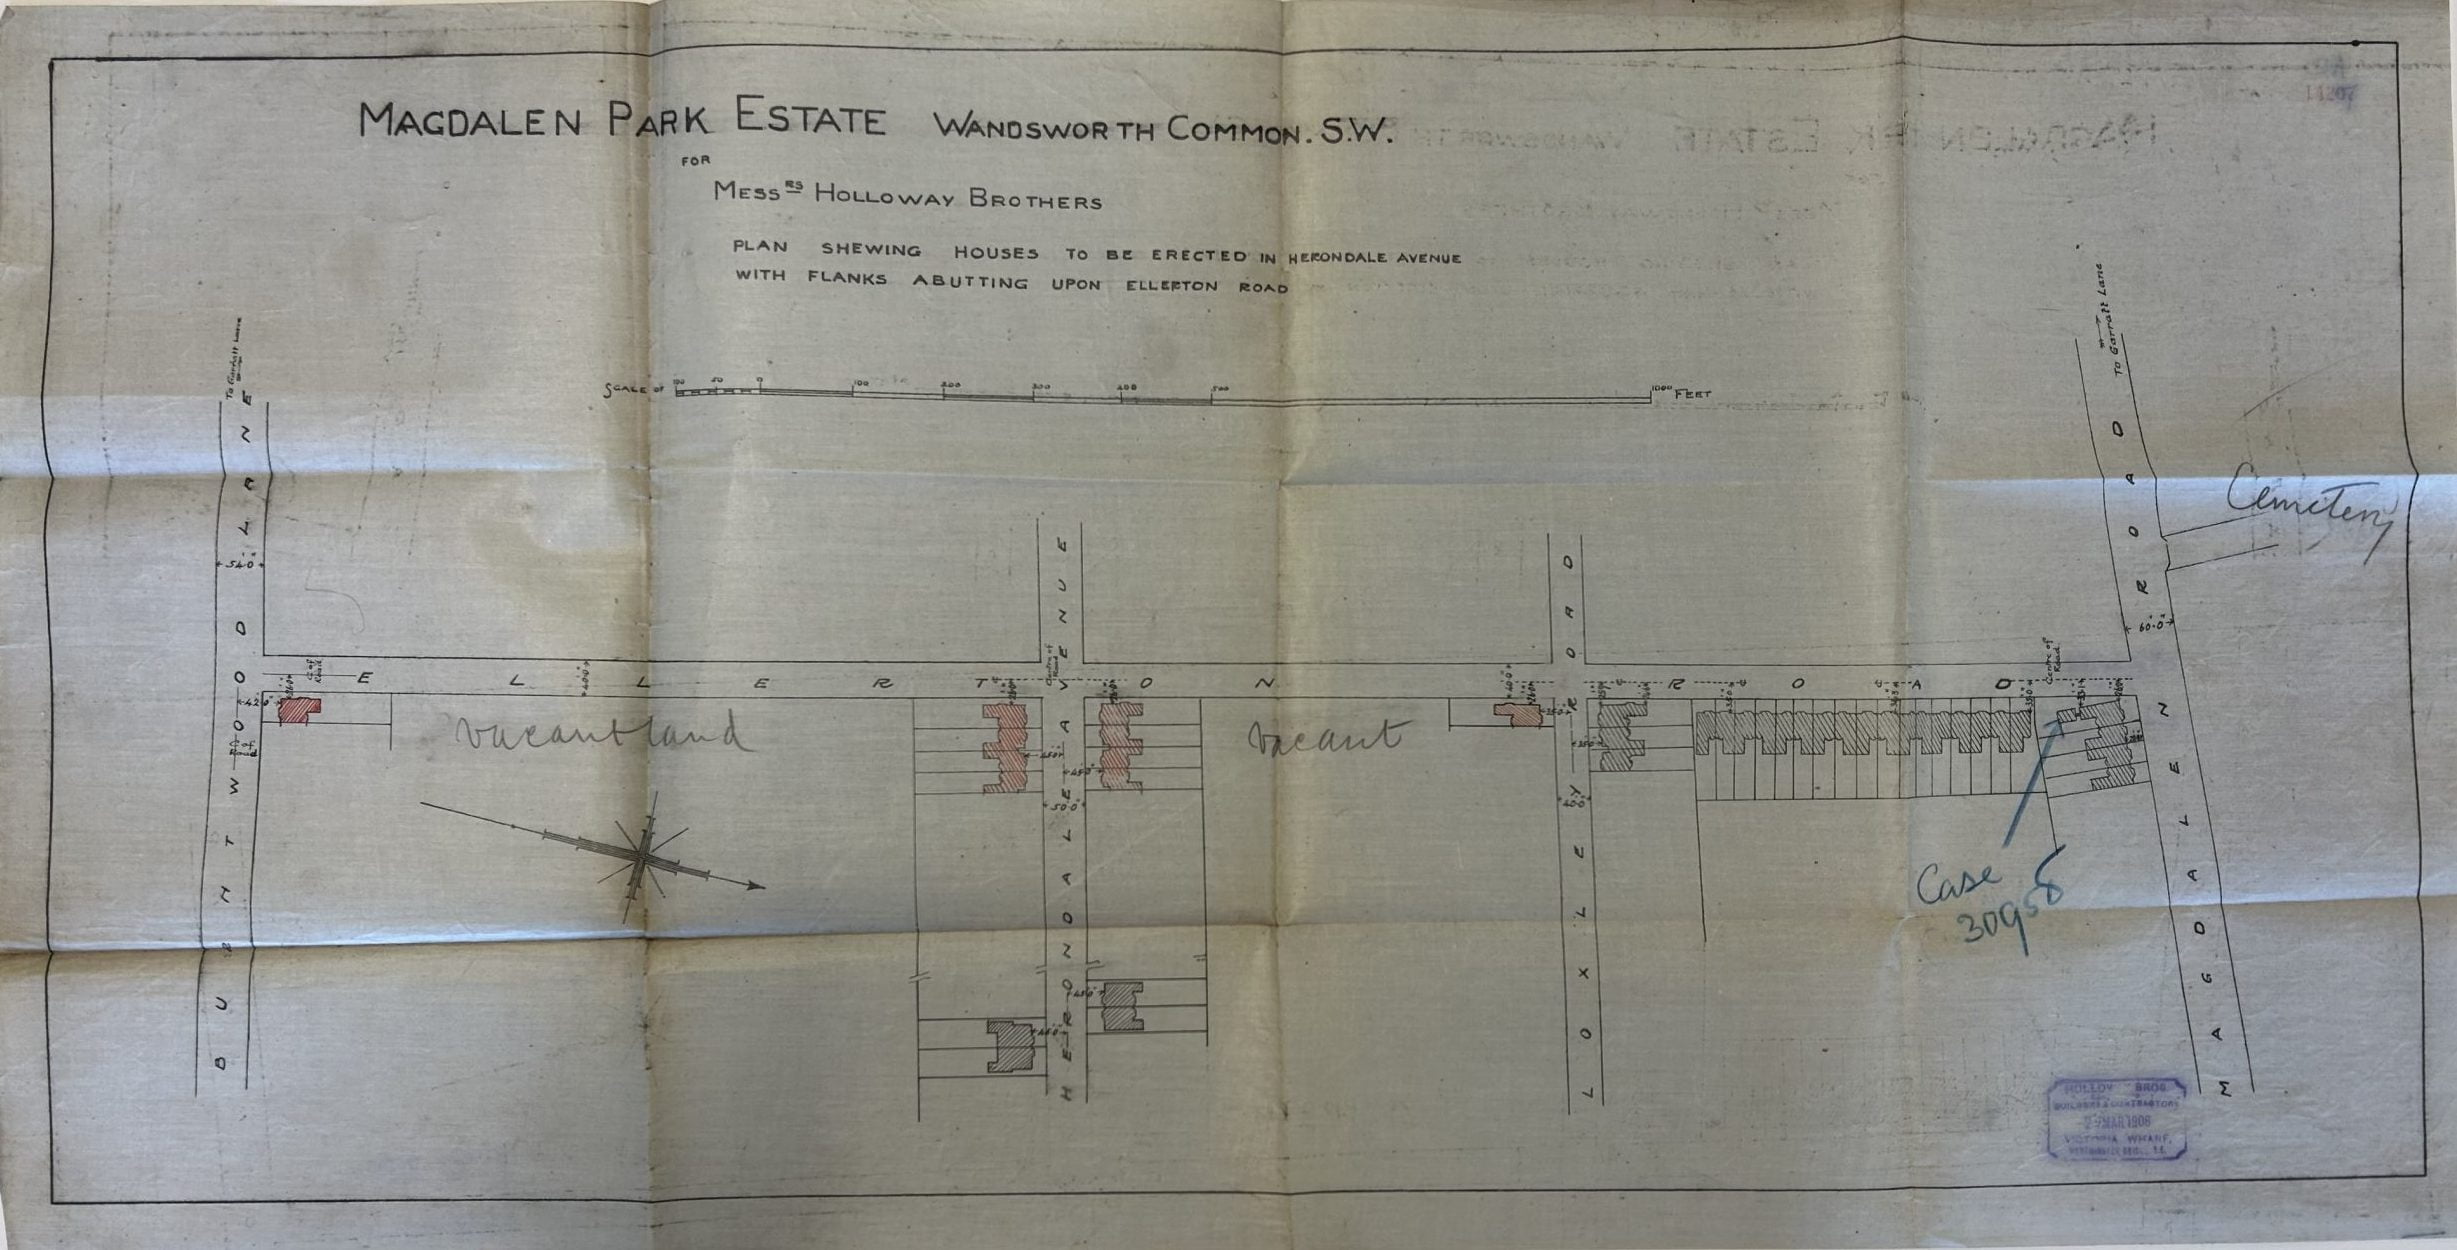 MAGDALEN PARK ESTATE WANDSWORTH COMMON. S.W.
FOR
MESSRS HOLLOWAY BROTHERS
PLAN SHEWING HOUSES TO BE ERECTED IN HERONDALE AVENUE
WITH FLANKS ABUTTING UPON ELLERTON ROAD
SCALE OF 100 50 0 100 200 300 400 500 1000 FEET
14207
To Garratt Lane
To Garratt Lane
BURNTWOOD LANE
54.0"
HERONDALE AVENUE
LOXLEY ROAD
MAGDALEN ROAD
60.0"
Cemetery
ELLERTON ROAD
C of Road
Centre of Road
Centre of Road
40.0"
40.0"
42.0"
vacant land
vacant
45.0"
45.0"
50.0"
40.0"
45.0"
45.0"
Case
30958
HOLLOWAY BROS
BUILDERS & CONTRACTORS
MAR 1908
VICTORIA WHARF,